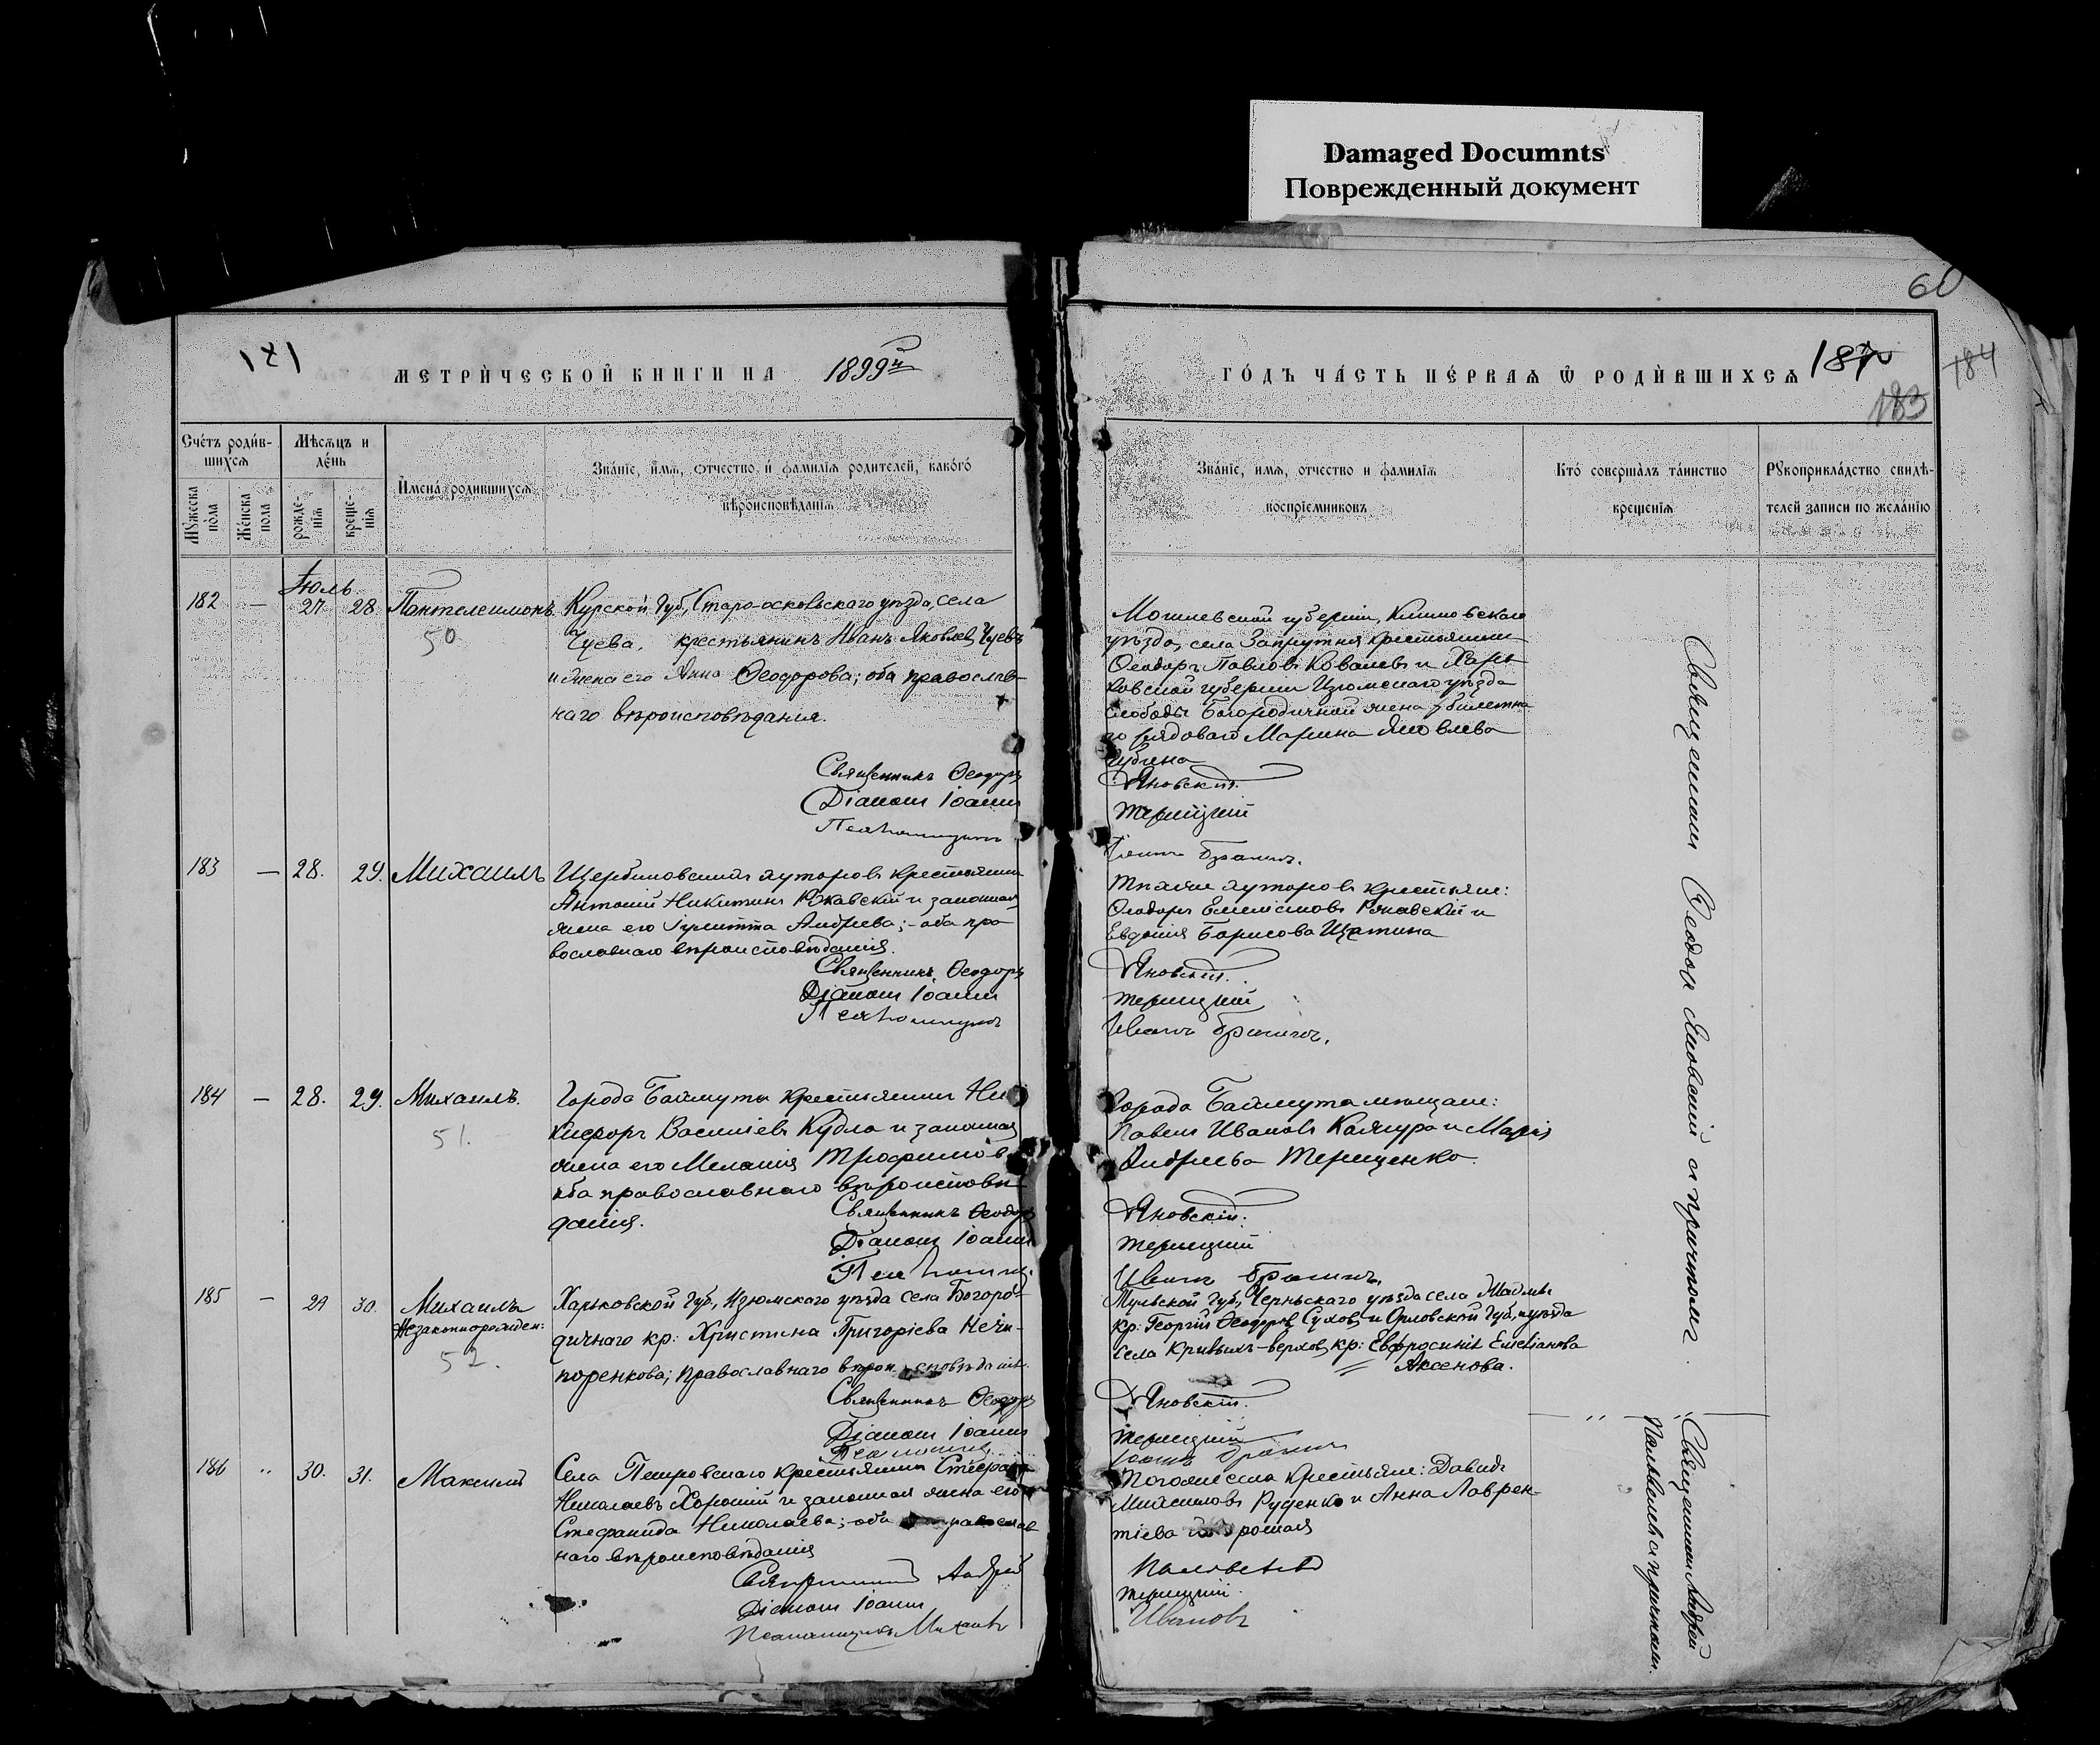 Damaged Documnts
Поврежденный документ
60
181
МЕТРИ́ЧЕСКОЙ КНИГИ НА 1899й
ГО́ДЪ ЧА́СТЬ ПЕ́РВАѦ Ѿ РОДИ́ВШИХСѦ
184
183
Сче́тъ роди́в-
шихсѧ
Мѣсѧцъ и
де́нь
Мꙋжеска по́ла
Же́нска пола
рожде-
нїѧ
креще-
нїѧ
И҆мена́ родившихсѧ
Зва́нїе, и҆мѧ, ѻтчество и҆ фамилїѧ родителей, како́гѡ
вѣроисповѣданїѧ
Зва́нїе, имѧ, отчество и фамилїѧ
воспрїемниковъ
Кто̀ совершалъ та́инство
крещенїѧ
Рꙋкоприкла́дство свидѣ-
телей записи по жела́нїю
Іюль
182 — 27. 28. Пантелеимонъ.
50
Курской Губ, Старо-оскольскаго уѣзда, села
Чуева, крестьянинъ Иванъ Яковлевъ Чуевъ
и жена его Анна Ѳеодорова; оба православ-
наго вѣроисповѣданія.
Священникъ Ѳеодоръ
Діаконъ Іоаннъ
Псаломщикъ
Могилевской губерніи, Климовскаго
уѣзда, села крестьянинъ
Ѳеодоръ Павловъ Ковалевъ и Харь-
ковской губерніи Изюмскаго уѣзда
слободы Богородичной жена
рядоваго Марина Яковлева
Яновскій.
183 — 28. 29. Михаилъ
Щербиновскихъ хуторовъ крестьянинъ
Антоній Никитинъ Ржавскій и законная
жена его Іулитта Андреева; - оба пра-
вославнаго вѣроисповѣданія.
Священникъ Ѳеодоръ
Діаконъ Іоаннъ
Псаломщикъ
Тѣхже хуторовъ крестьяне:
Ѳеодоръ Емеліановъ Ржавскій и
Евдокія Борисова Щетинa
Яновскій.
184 — 28. 29. Михаилъ.
51.
Города Бахмута крестьянинъ Ни
кифоръ Василіевъ Кудла и законная
жена его Меланія Трофимов
оба православнаго вѣроисповѣ
данія.
Священникъ Ѳеодоръ
Діаконъ Іоаннъ
Города Бахмута мѣщане:
Павелъ Ивановъ и Марія
Андреева Терещенко.
Яновскій.
185 — 29 30. Михаилъ
Незаконнорожден:
52.
Харьковской Губ, Изюмскаго уѣзда села Богоро-
дичнаго кр: Христина Григоріева Нечи-
поренкова; Православнаго вѣроисповѣданія.
Священникъ Ѳеодоръ
Діаконъ Іоаннъ
Тульской Губ, Черньскаго уѣзда села
кр: Георгій Ѳеодоровъ Суховъ, и Орловской Губ, и уѣзда
села Кривыхъ-верховъ, кр: Евфросинія Емеліанова
Аксенова.
Яновскій.
186 „ 30. 31. Максимъ
Села Петровскаго крестьянинъ Стефанъ
Николаевъ Хорошій и законная жена его
Стефанида Николаева; - оба православ
наго вѣроисповѣданія
Андрей
Діаконъ Іоаннъ
Псаломщикъ Михаилъ
Тогоже села крестьяне: Давидъ
Михаиловъ Руденко и Анна Лаврен-
тіева
Ивановъ
Священникъ Ѳеодоръ Яновскій съ причтомъ.
Священникъ Андрей
съ причтомъ.